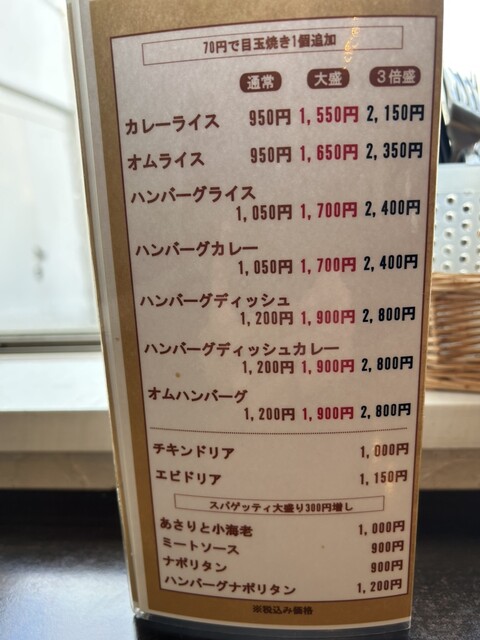 70円で目玉焼き1個追加
通常 大盛 3倍盛
カレーライス 950円 1,550円 2,150円
オムライス 950円 1,650円 2,350円
ハンバーグライス
1,050円 1,700円 2,400円
ハンバーグカレー
1,050円 1,700円 2,400円
ハンバーグディッシュ
1,200円 1,900円 2,800円
ハンバーグディッシュカレー
1,200円 1,900円 2,800円
オムハンバーグ
1,200円 1,900円 2,800円
チキンドリア 1,000円
エビドリア 1,150円
スパゲッティ大盛り300円増し
あさりと小海老 1,000円
ミートソース 900円
ナポリタン 900円
ハンバーグナポリタン 1,200円
※税込み価格